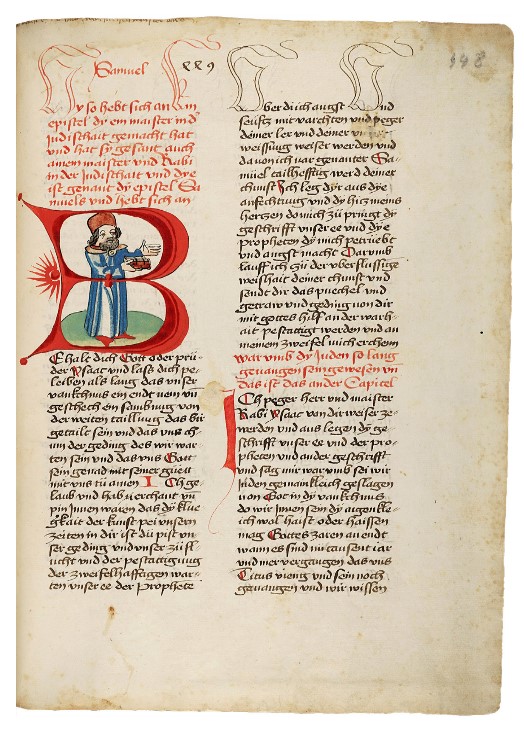 Samuel
Hy so hebt sich an ein
epistel dy ein maister in d
Judischait gemacht hat
und hat sy gesant auch
ainem maister und Rabi
in der Judischait und dye
ist genant dy epistel Sa
muels und hebt sich an
Behalt dich Gott oder prü-
der Ysaac und lass dich pe-
leiben als lang das unser
vanckhnus ein endt nem un
geschech ein sambnug von
der weiten taillung das bir
getaille sein und das uns ch-
um der geding des wir war
ten sein und das uns Gott
sein genad mit seiner güett
mit uns tü amen Ich ge-
laub und hab u erchant un
pin Innen waren das dy klue
gkait der kunst pei unsern
zeiten in dir ist dü pist un-
ser geding und unser züfl-
ucht und der pestattigung
der zweifelhafftigen war-
ten unser ee der prophete
uber dü ich angst und
seuftz mit vorchten und peger
deiner ler und deiner un
weissung weiset werden und
da von ich var genanter Sa-
muel tailhefftig werd deiner
chunst Ich leg dyr aus dye
anfechtung und dy hicz meins
herczen do mich zü pringt dy
geschrifft unser ee und dye
propheten dy mich petriebt
und angst macht Darumb
lauff ich zü der uberflussige
weishait deiner chunst und
sendt dir das puechel und
getraw und geding von dir
mit gottes hilf an der warh-
ait pestattigt werden und an
meinem zweifel mich erchenn
warumb dy Juden so lang
gevangen sein gewesen un
das ist das ander Capitel
Ich peger herr und maister
Rabi Ysaac von dir weiser ze-
werden und aus legen dy ge-
schrifft unser ee und der pro-
pheten und ander geschrifft
und sag mir warumb sei wir
Juden gemainkleich geslagen
von Got in dy vanckhnus
do wir Innen sein dy aigenkle-
ich wol haist oder haissen
mag Gottes zaren an endt
wann es sind nu tausent iar
und mer vergangen das uns
Titus vieng und sein noch
gevangen und wir wissen